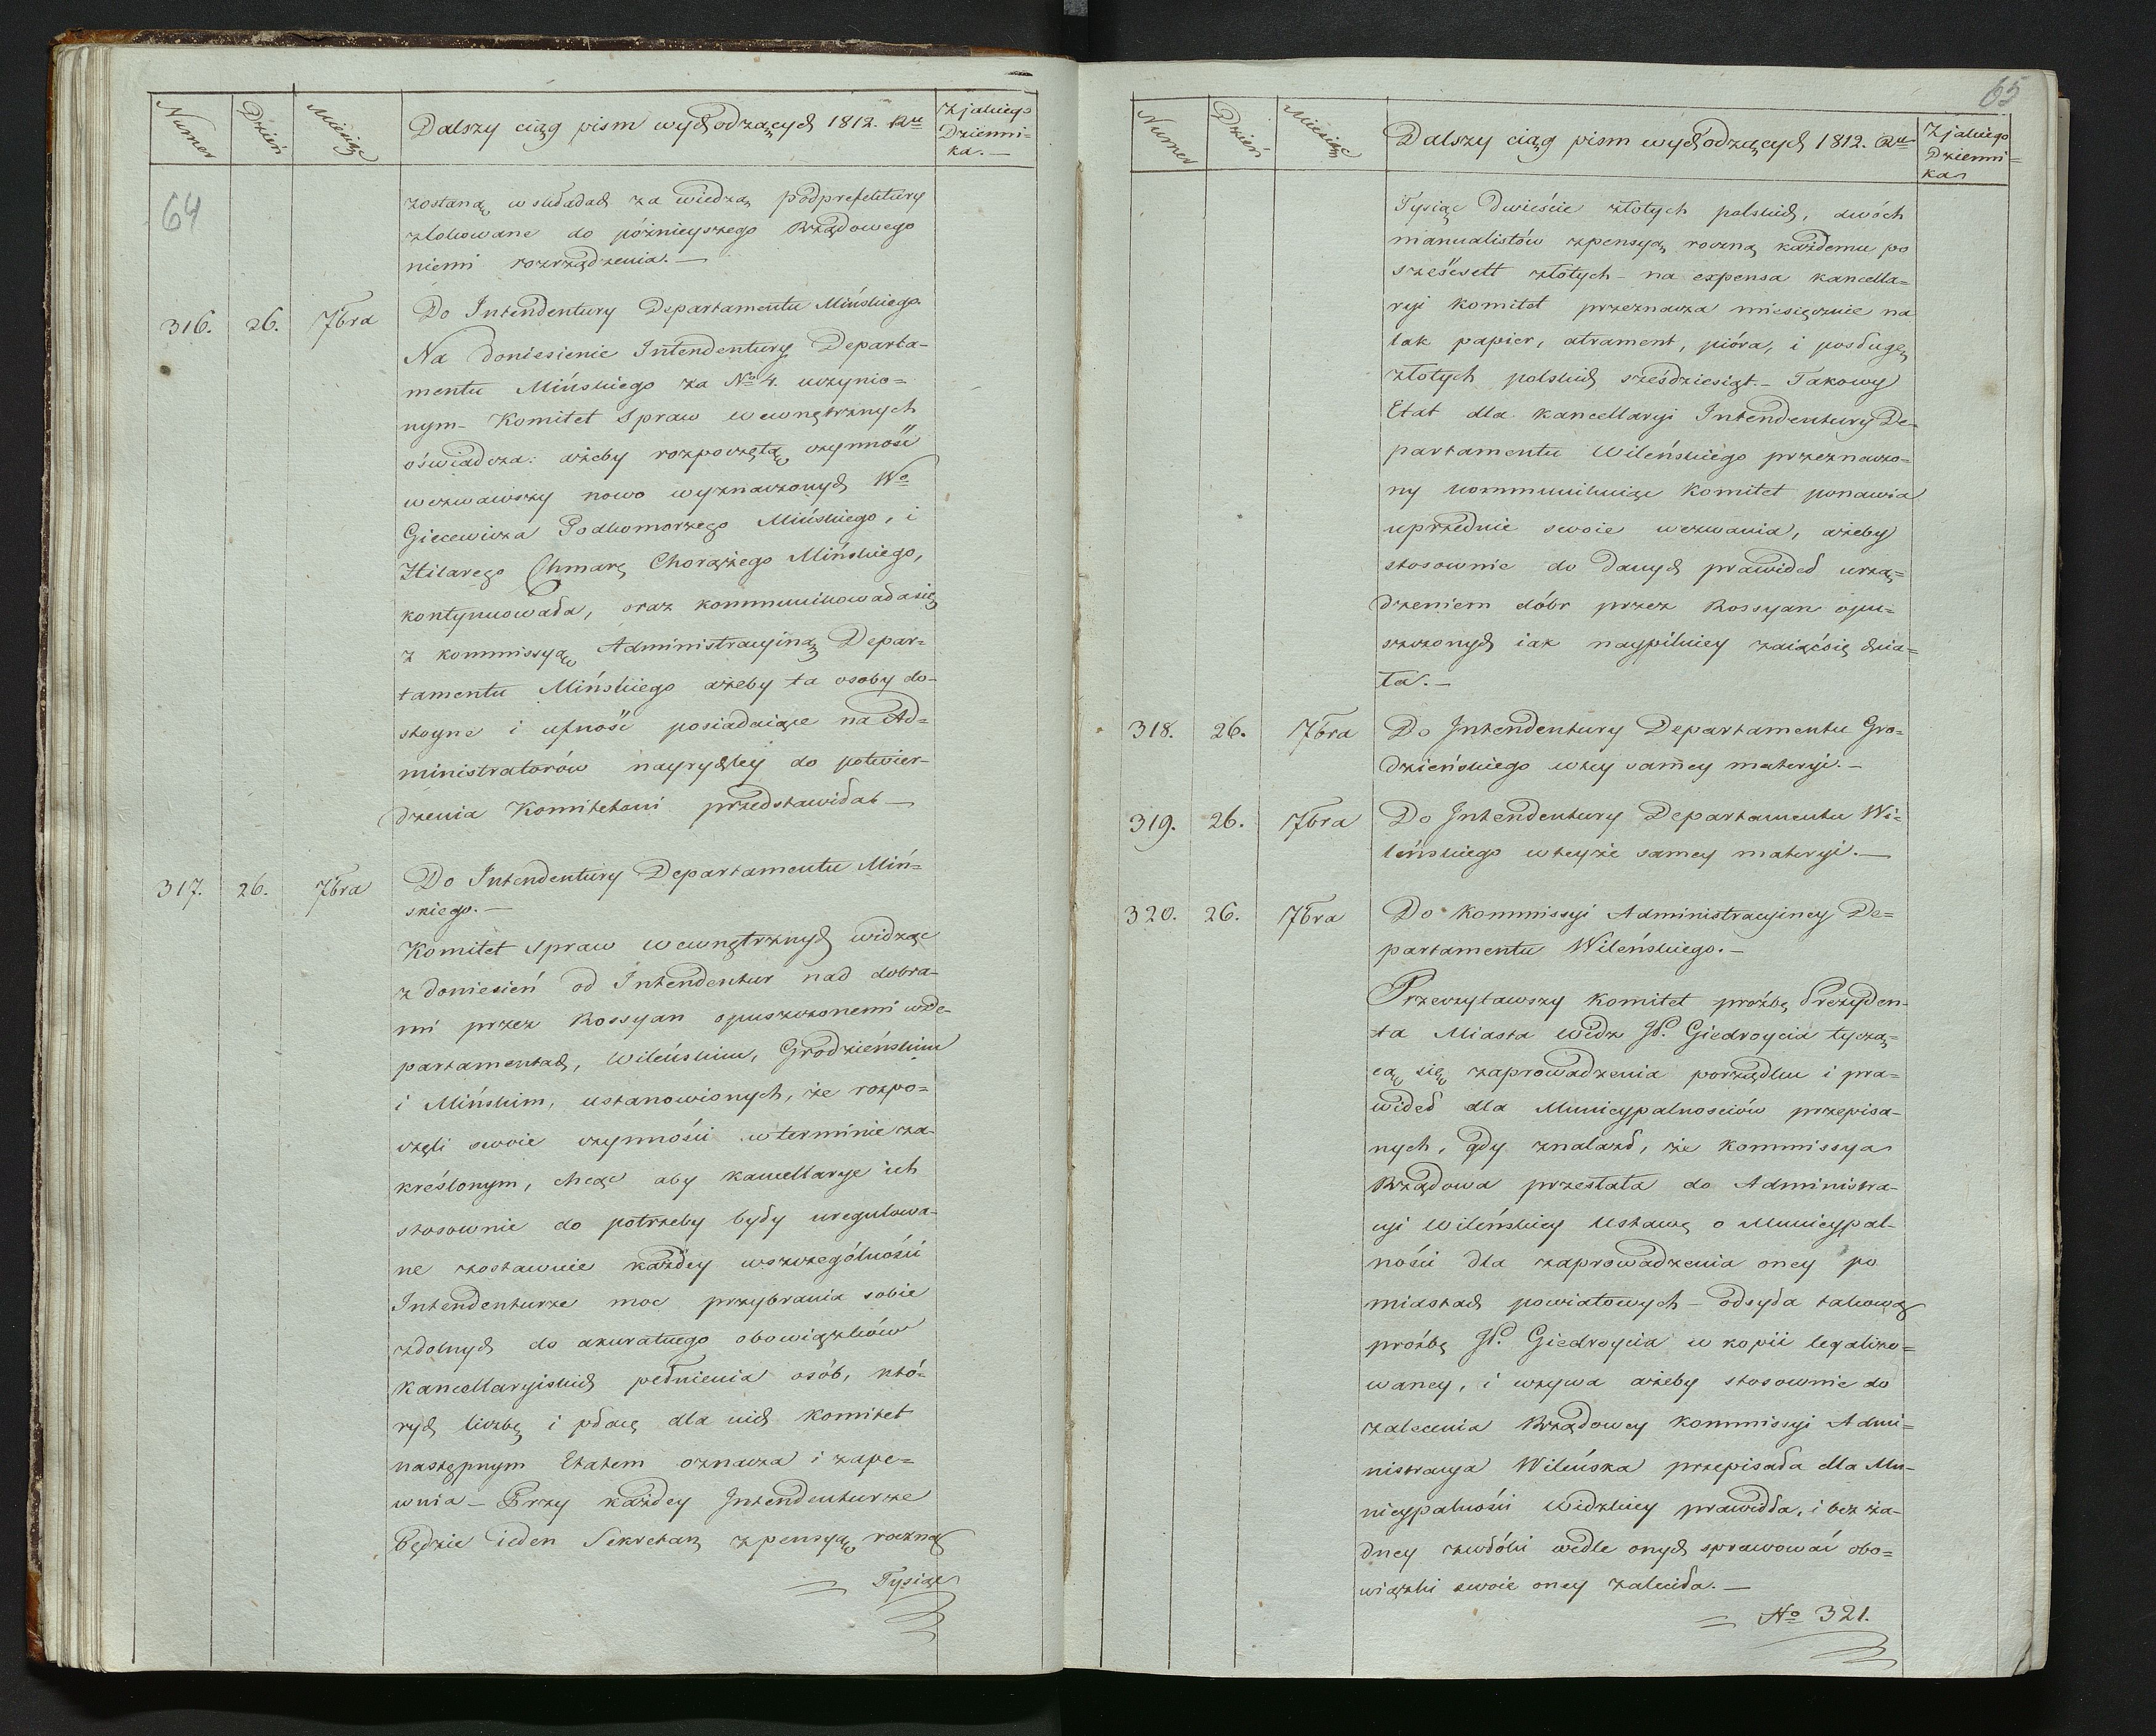 Numer
Dzień
Miesiąc
Dalszy ciąg pism wychodzących 1812. Ru
Z jakiego
Dzienni-
ka.—
64
zostaną w składach za wiedzą podprefektury
zlokowane do późnieyszego Rządowego
niemi rozrządzenia.—
316. 26. 7bra Do Intendentury Departamentu Mińskiego.
Na doniesienie Intendentury Departa-
mentu Mińskiego za No 4. uczynio=
nym - Komitet Spraw wewnętrznych
oświadcza: ażeby rozpoczętą czynność
wezwawszy nowo wyznaczonych Wo
Giecewicza Podkomorzego Mińskiego, i
Hilarego Chmarę Chorążego Mińskiego,
kontynuowała, oraz kommunikowała się
z kommissyą Administracyiną Depar=
tamentu Mińskiego ażeby ta osoby do-
stoyne i ufność posiadaiące na Ad=
ministratorów nayrychley do potwier-
dzenia Komitetowi przedstawiła.—
317. 26. 7bra Do Intendentury Departamentu Miń=
skiego.—
Komitet Spraw wewnętrznych widząc
z doniesień od Intendentur nad dobra-
mi przez Rossyan opuszczonemi w De-
partamentach, Wileńskim, Grodzieńskim
i Mińskim, ustanowionych, że rozpo=
częli swoie czynności w terminie za-
kreślonym, chcąc aby kancellarye ich
stosownie do potrzeby były uregulowa-
ne zostawuie każdey w szczególności
Intendenturze moc przybrania sobie
zdolnych do akuratnego obowiązków
kancellaryiskich pełnienia osób, któ-
rych liczbę i płacę dla nich Komitet
następnym Etatem oznacza i zape=
wnia - Przy każdey Intendenturze
będzie ieden Sekretarz z pensyą roczną
= Tysiąc
65
Numer
Dzień
Miesiąc
Dalszy ciąg pism wychodzących 1812. Ru
Z jakiego
Dzienni=
ka
Tysiąc dwieście złotych polskich, dwóch
manualistów z pensyą roczną każdemu po
sześćsett złotych - na expensa kancella=
ryi Komitet przeznacza miesięcznie na
lak papier, atrament, pióra, i posługę
złotych polskich sześdziesiąt.- Takowy
Etat dla kancellaryi Intendentury De-
partamentu Wileńskiego przeznaczo=
ny kommunikuiąc Komitet ponawia
uprzednie swoie wezwania, ażeby
stosownie do danych prawideł urzą=
dzeniem dóbr przez Rossyan opu=
szczonych iak naypilniey zaiąć się chcia=
ła.—
318. 26. 7bra Do Intendentury Departamentu Gro=
dzieńskiego w tey samey materyi.—
319. 26. 7bra Do Intendentury Departamentu Wi=
leńskiego w teyże samey materyi.—
320. 26. 7bra Do Kommissyi Administracyiney De=
partamentu Wileńskiego.—
Przeczytawszy Komitet prożbę Prezyden-
ta Miasta Widz JP. Giedroycia tyczą=
cą się zaprowadzenia porządku i pra=
wideł dla Municypalnosciów przepisa-
nych, gdy znalazł, że Kommissya
Rządowa przesłała do Administra-
cyi Wileńskiey Ustawę o Municypal-
ności dla zaprowadzenia oney po
miastach powiatowych - odsyła takową
prożbę JP. Giedroycia w kopii legalizo=
waney, i wzywa ażeby stosownie do
zalecenia Rządowey Kommissyi Admi=
nistracya Wileńska przepisała dla Mu-
nicypalności Widzkiey prawidła, i bez ża-
dney zwłóki wedle onych sprawować obo=
wiązki swoie oney zaleciła.—
= No 321.